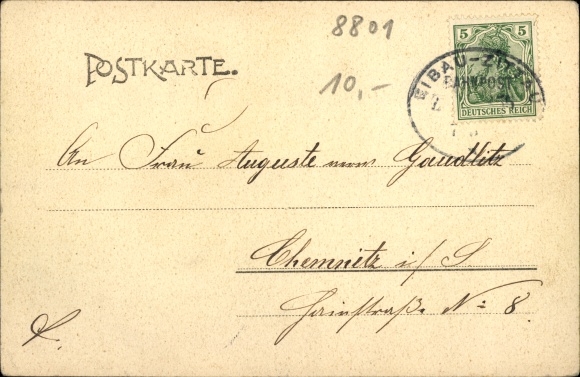 8801
10,-
POSTKARTE.
5 5
DEUTSCHES REICH
EIBAU-ZITTAU
BAHNPOST
An Frau Auguste verw Gaudlitz
Chemnitz i/S.
Hainstraße No 8.